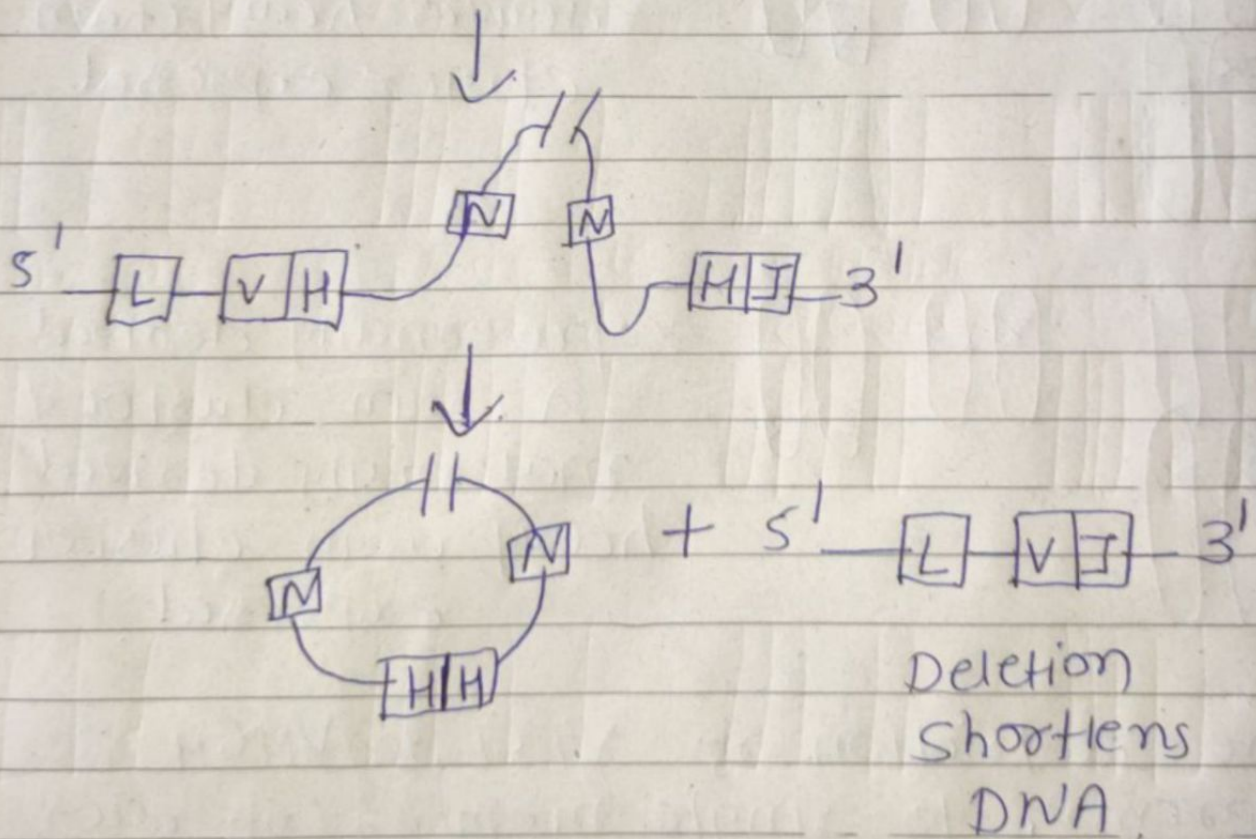 N N
5' L V H H J 3'
N N + 5' L V J 3'
H H
Deletion
Shortlens
DNA